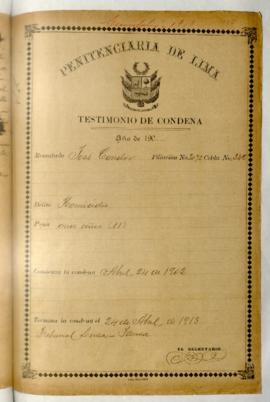 PENITENCIARIA DE LIMA
TESTIMONIO DE CONDENA
Año de 190
Rematado José Condor Filiación No. Celda No.
Delito Homicidio
Pena once años (11)
Comienza la condena Abril 24 de 1902
Termina la condena el 24 de Abril de 1913
Tribunal
EL SECRETARIO